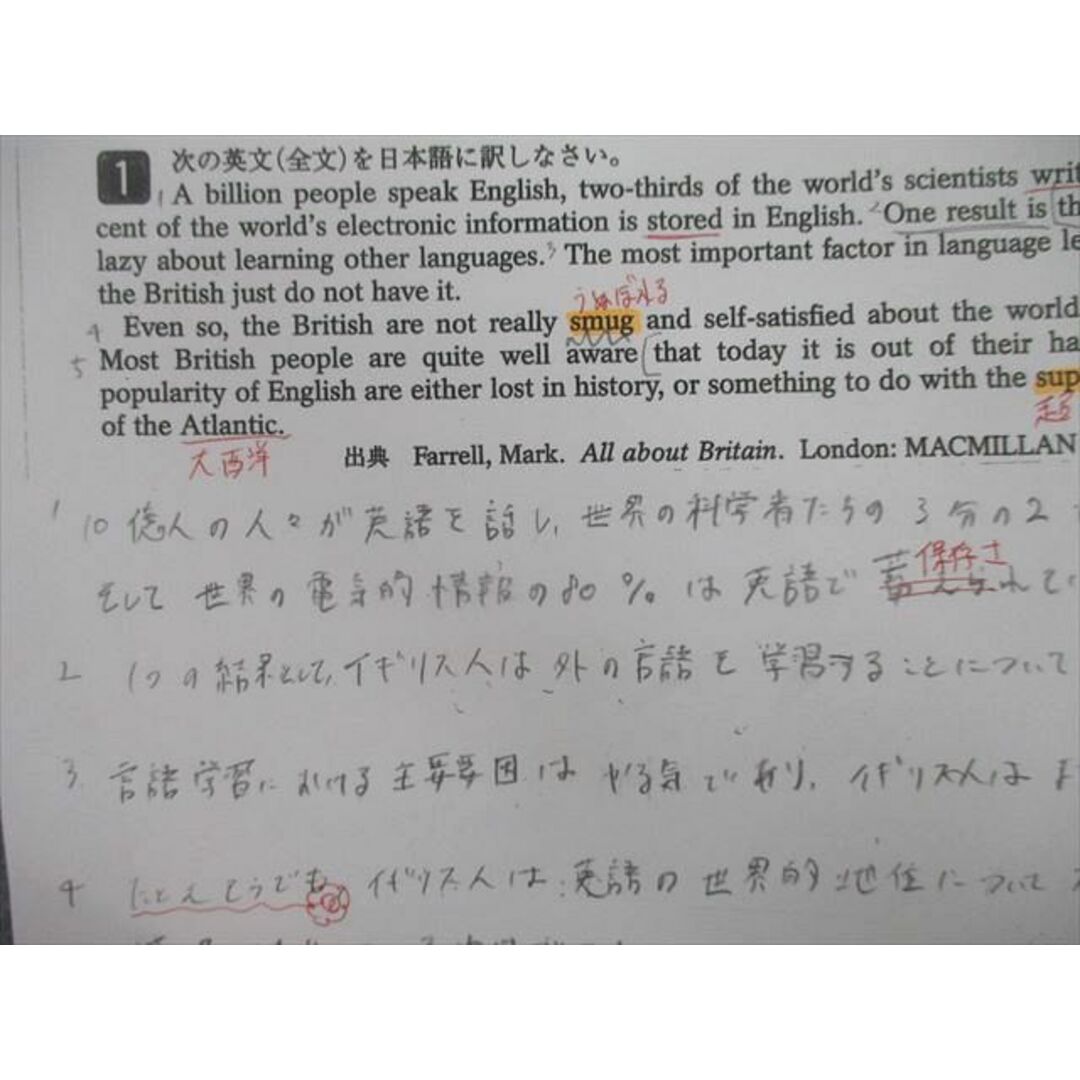 1 次の英文(全文)を日本語に訳しなさい。
1 A billion people speak English, two-thirds of the world's scientists writ
cent of the world's electronic information is stored in English. 2 One result is th
lazy about learning other languages. 3 The most important factor in language le
the British just do not have it.
うぬぼれる
4 Even so, the British are not really smug and self-satisfied about the world
5 Most British people are quite well aware that today it is out of their ha
popularity of English are either lost in history, or something to do with the sup
超
of the Atlantic.
大西洋
出典 Farrell, Mark. All about Britain. London: MACMILLAN
1 10億人の人々が英語を話し、世界の科学者たちの3分の2
保存さ
そして世界の電気的情報の80%は英語で蓄えられてい
2 1つの結果として、イギリス人は外の言語を学習することについて
3 言語学習における主要要因はやる気であり、イギリス人はま
4 たとえそうでも イギリス人は、英語の世界的地位について